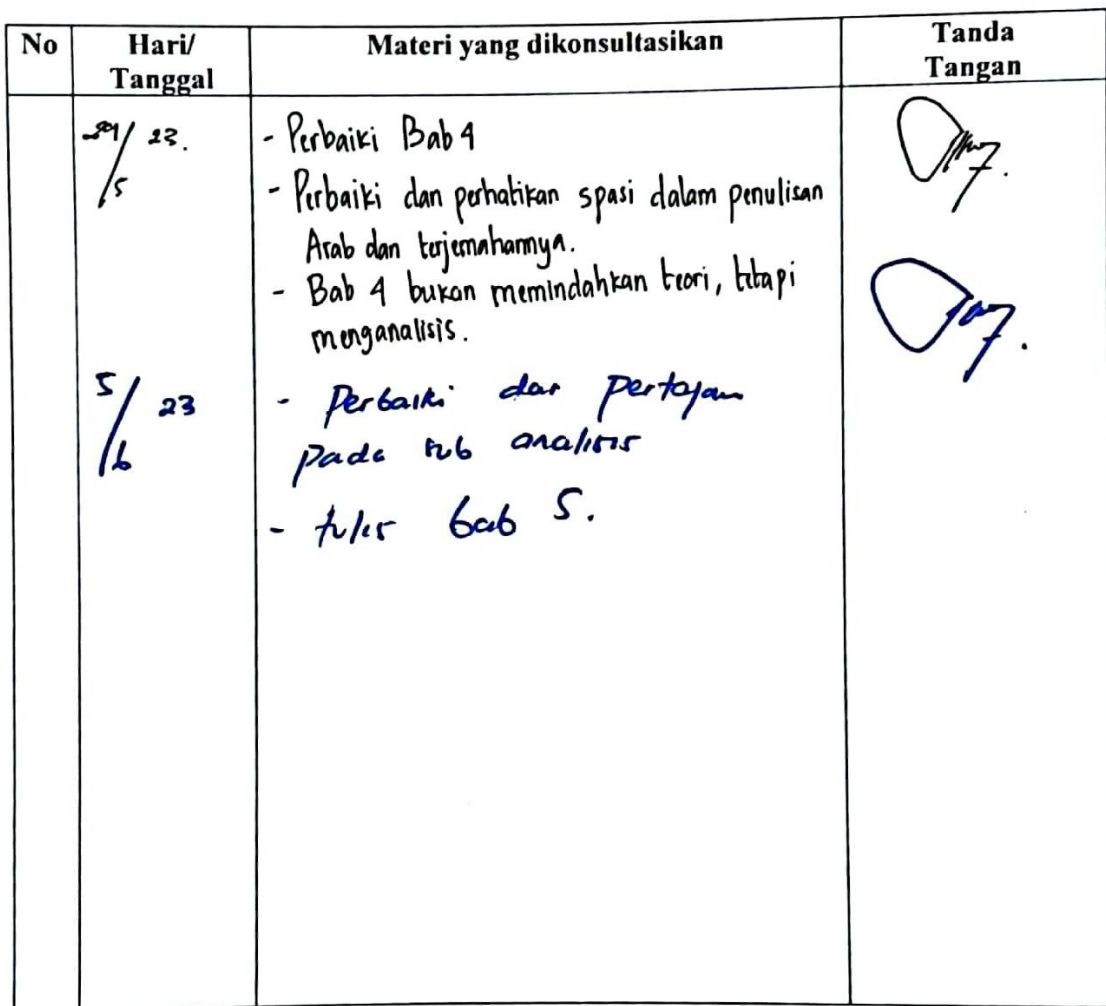 No Hari/ Tanggal Materi yang dikonsultasikan Tanda Tangan
/5 23.
- Perbaiki Bab 4
- Perbaiki dan perhatikan spasi dalam penulisan
Arab dan terjemahannya.
- Bab 4 bukan memindahkan teori, tetapi
menganalisis.
5/6 23
- Perbaiki dan pertajam
pada sub analisis
- tulis bab 5.